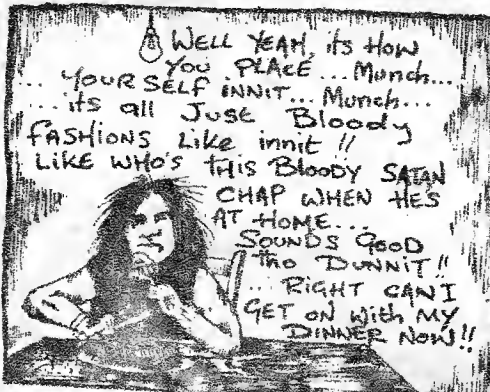 WELL YEAH, its HOW
YOU PLACE ... Munch...
... YOURSELF INNIT... Munch...
... its all JUST Bloody
FASHIONS Like innit !!
LIKE WHO'S THIS Bloody SATAN
CHAP WHEN HES
AT HOME...
SOUNDS GOOD
tho DUNNIT !!
... RIGHT CAN I
GET ON WITH MY
DINNER NOW !!